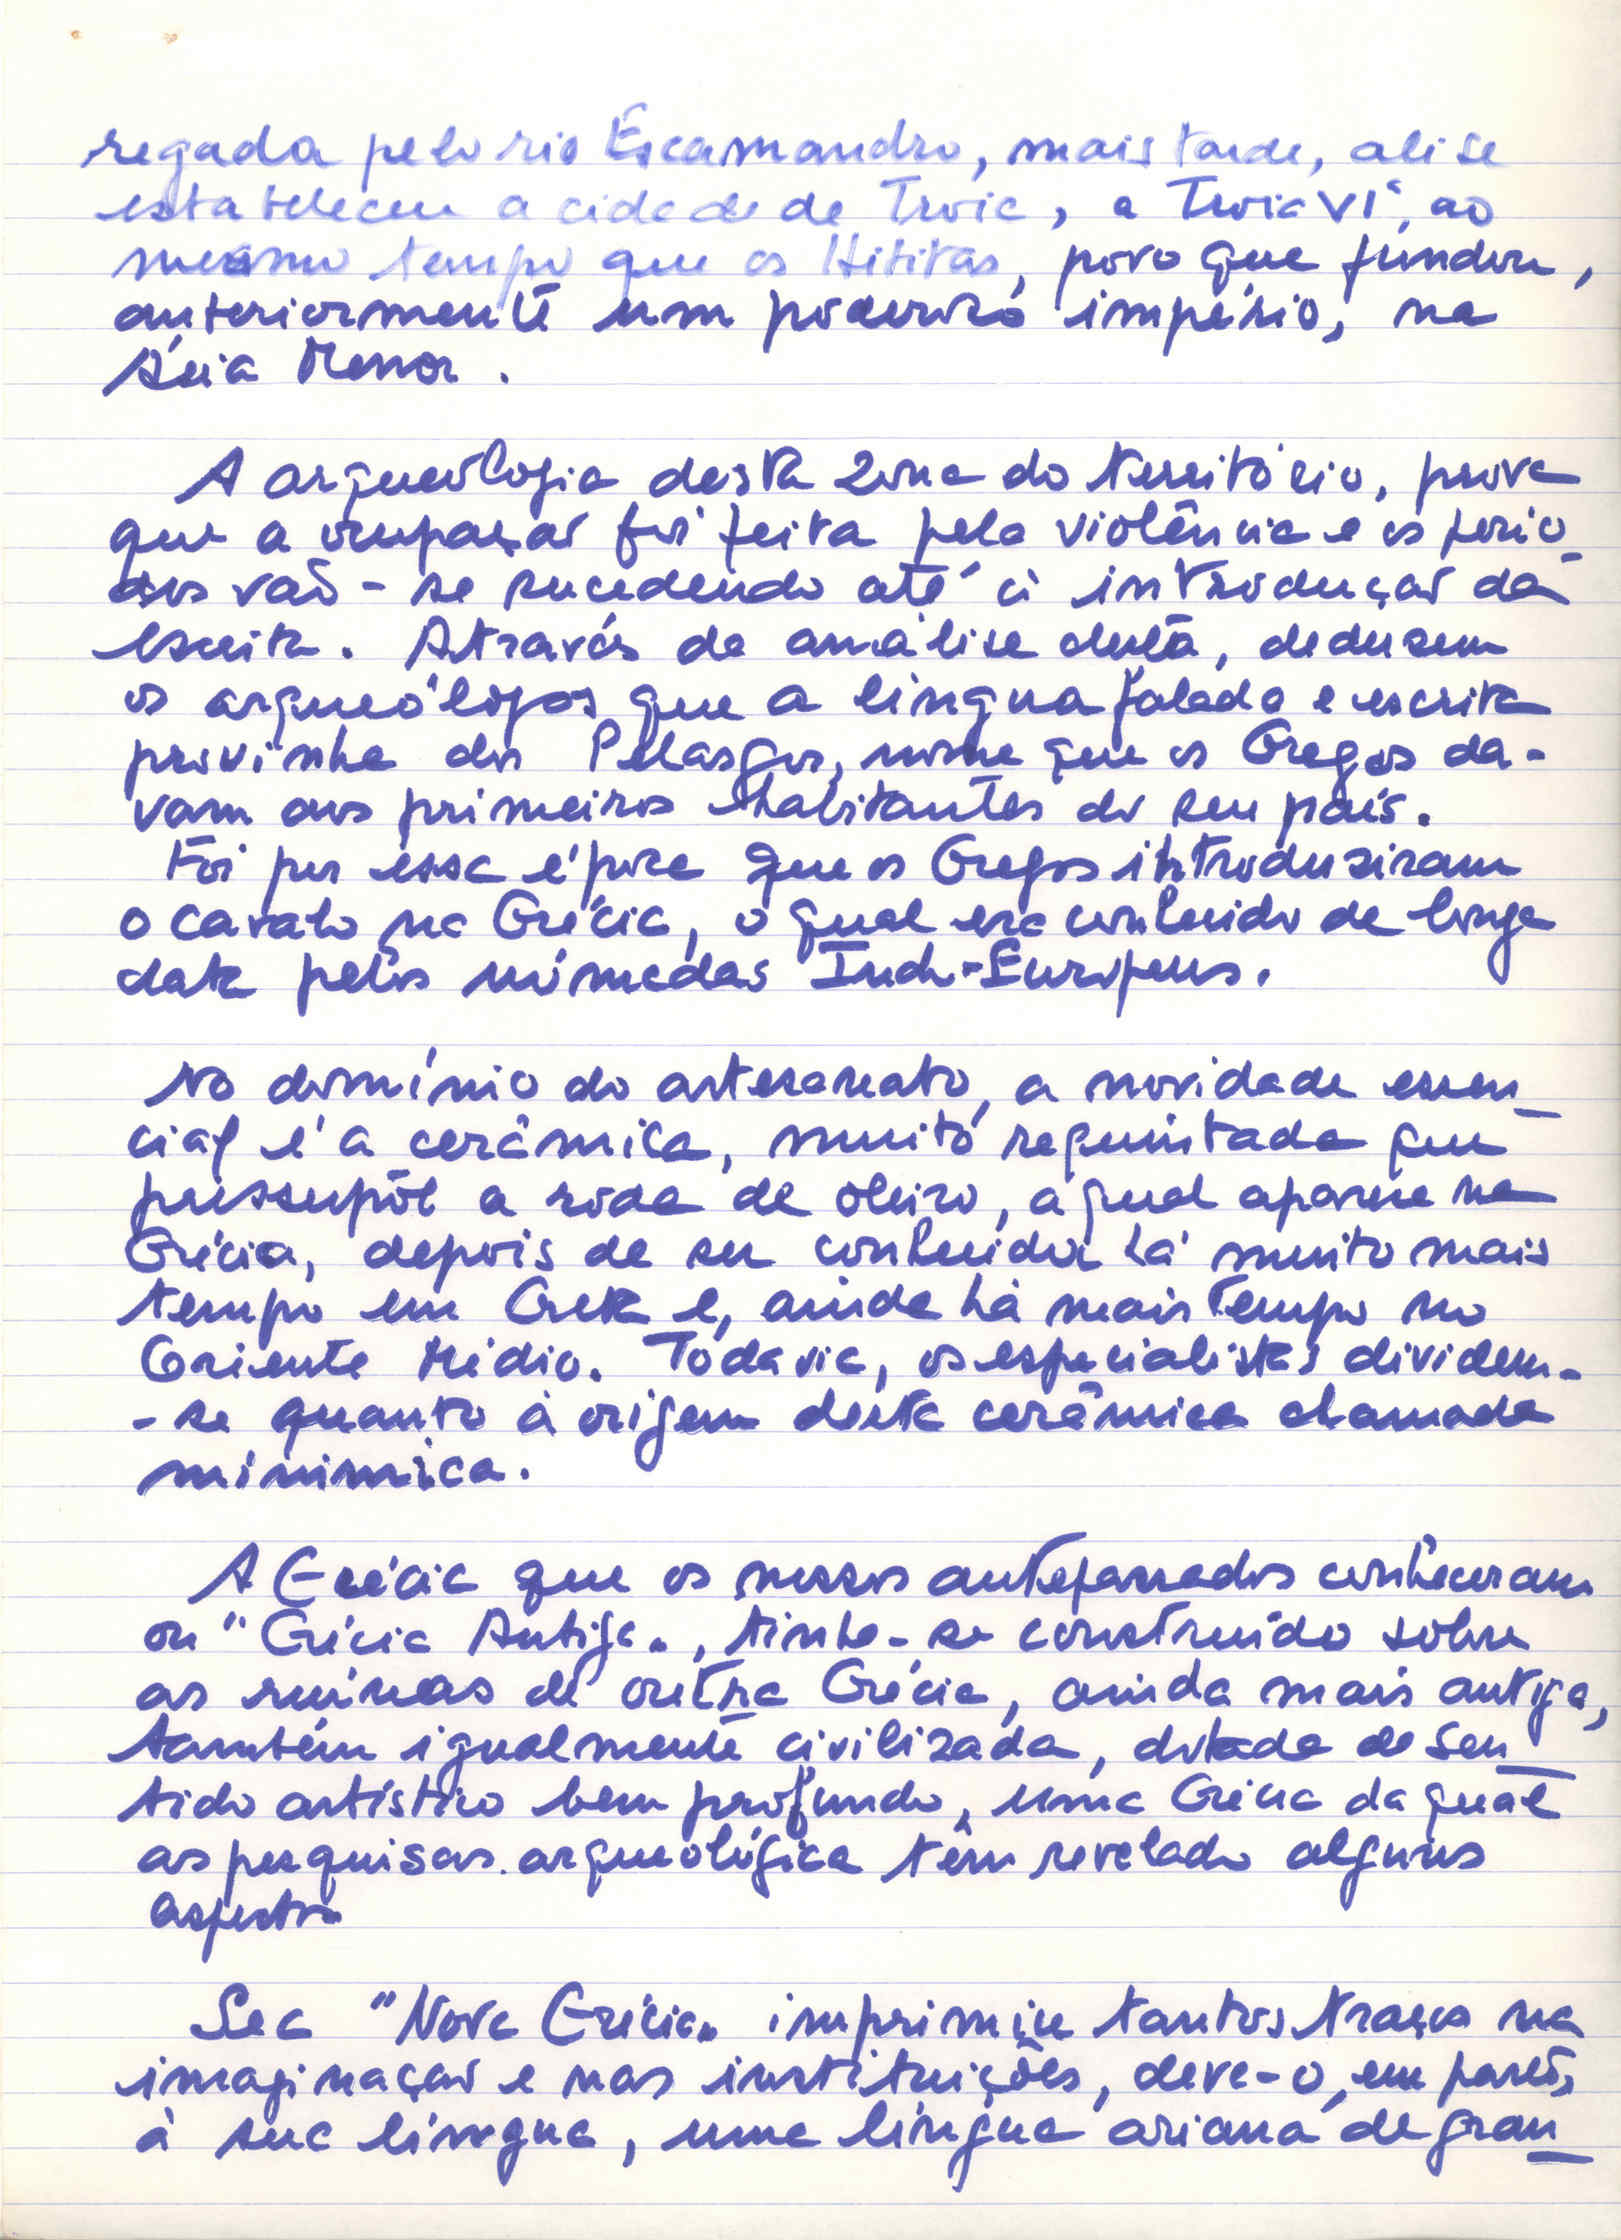 regada pelo rio Escamandro, mais tarde, ali se
estabeleceu a cidade de Troia, a Troia VI, ao
mesmo tempo que os Hititas, povo que fundou,
anteriormente um poderoso império, na
Ásia Menor.
A arqueologia desta zona do território, prova
que a ocupação foi feita pela violência e os perío_
dos vaõ-se sucedendo até à introdução da
escrita. Através da análise desta, deduzem
os arqueólogos que a língua falada e escrita
provinha dos Pelasgos, nome que os Gregos da-
vam aos primeiros habitantes do seu país.
Foi por essa época que os Gregos introduziram
o cavalo na Grécia, o qual era conhecido de longa
data pelos nómadas Indo-Europeus.
No domínio do artesanato, a novidade essen_
cial é a cerâmica, muito requintada que
pressupõe a roda de oleiro, a qual aparece na
Grécia, depois de ser conhecida há muito mais
tempo em Creta e, ainda há mais tempo no
Oriente Médio. Todavia, os especialistas dividem-
-se quanto à origem desta cerâmica chamada
minimica.
A Grécia que os nossos antepassados conheceram
ou "Grécia Antiga", tinha-se construído sobre
as ruínas de outra Grécia, ainda mais antiga,
também igualmente civilizada, dotada de sen_
tido artístico bem profundo, uma Grécia da qual
as pesquisas arqueológica têm revelado alguns
aspectos
Se a "Nova Grécia" imprimiu tantos traços na
imaginação e nas instituições, deve-o, em parte,
à sua língua, uma língua ariana de gran_